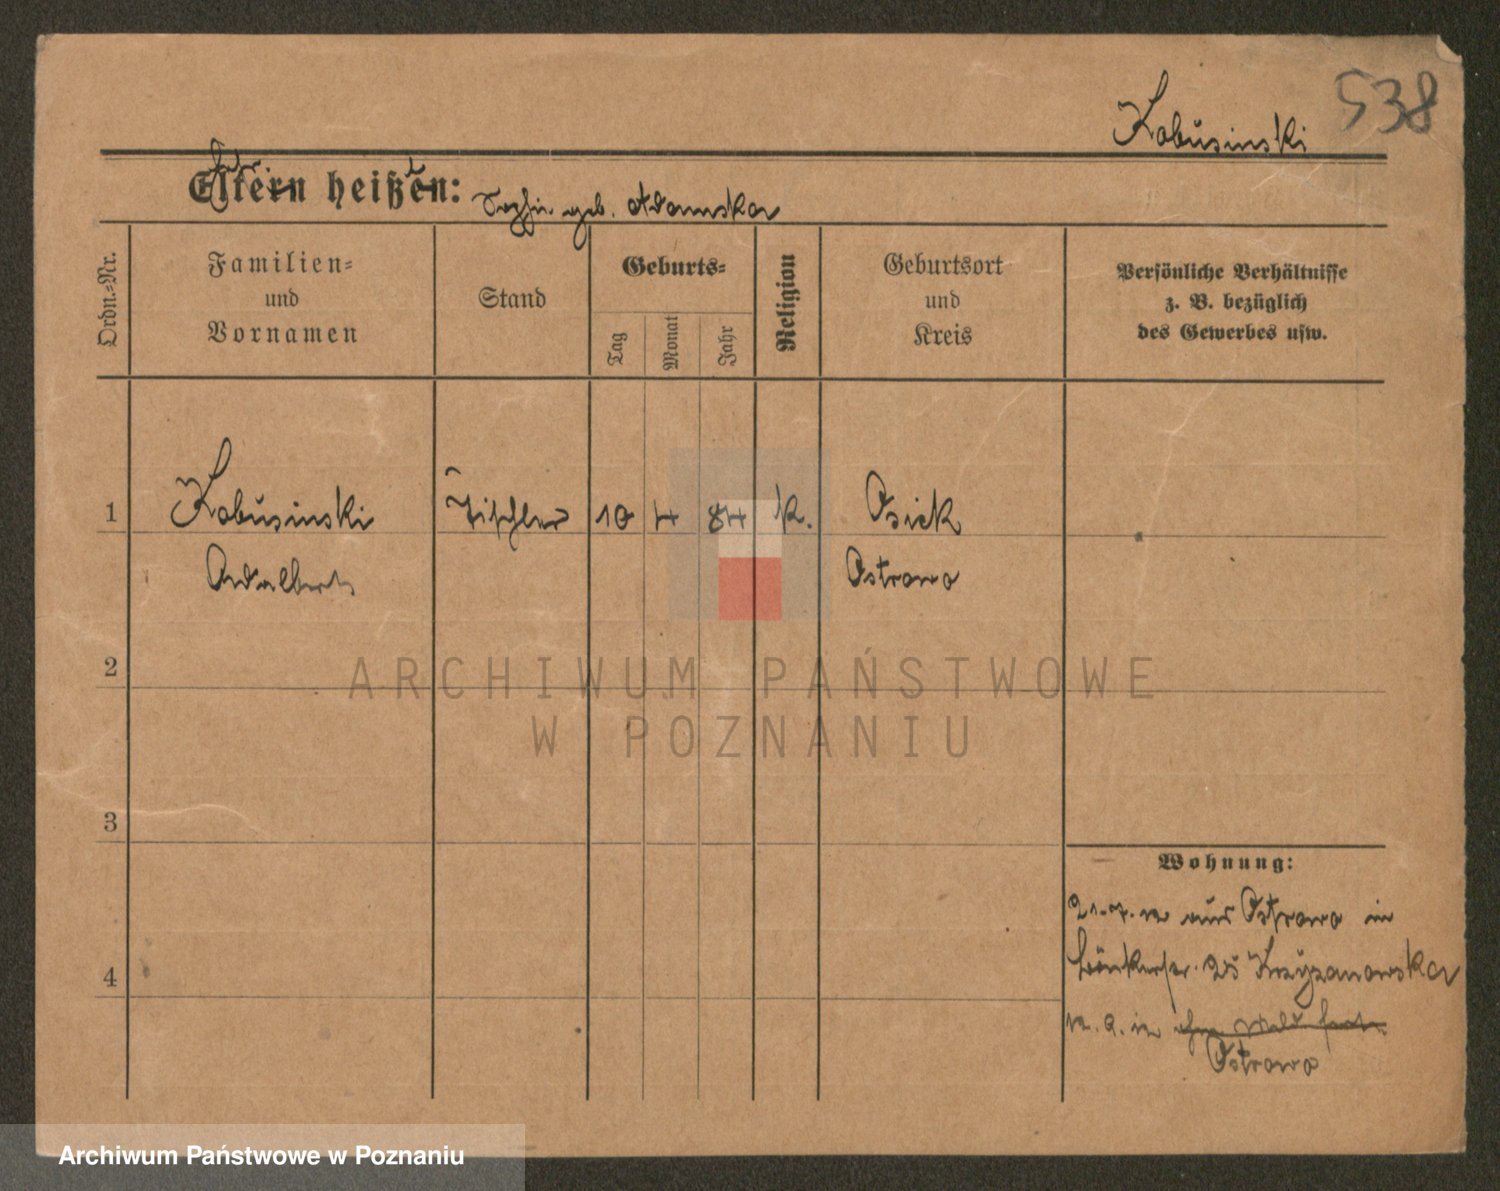 538
Kobusinski
Frau
Eltern heißen:
Sophie geb. Adamska
Ordn.-Nr.
Familien-
und
Vornamen
Stand
Geburts-
Tag
Monat
Jahr
Religion
Geburtsort
und
Kreis
Persönliche Verhältnisse
z. B. bezüglich
des Gewerbes usw.
1
Kobusinski
Adalbert
Tischler
10
4
84
K.
Osiek
Ostrowo
2
3
4
Wohnung:
21.7.12 aus Ostrowo in
25 Krzyzanowska
Ostrowo
ARCHIWUM PAŃSTWOWE
W POZNANIU
Archiwum Państwowe w Poznaniu